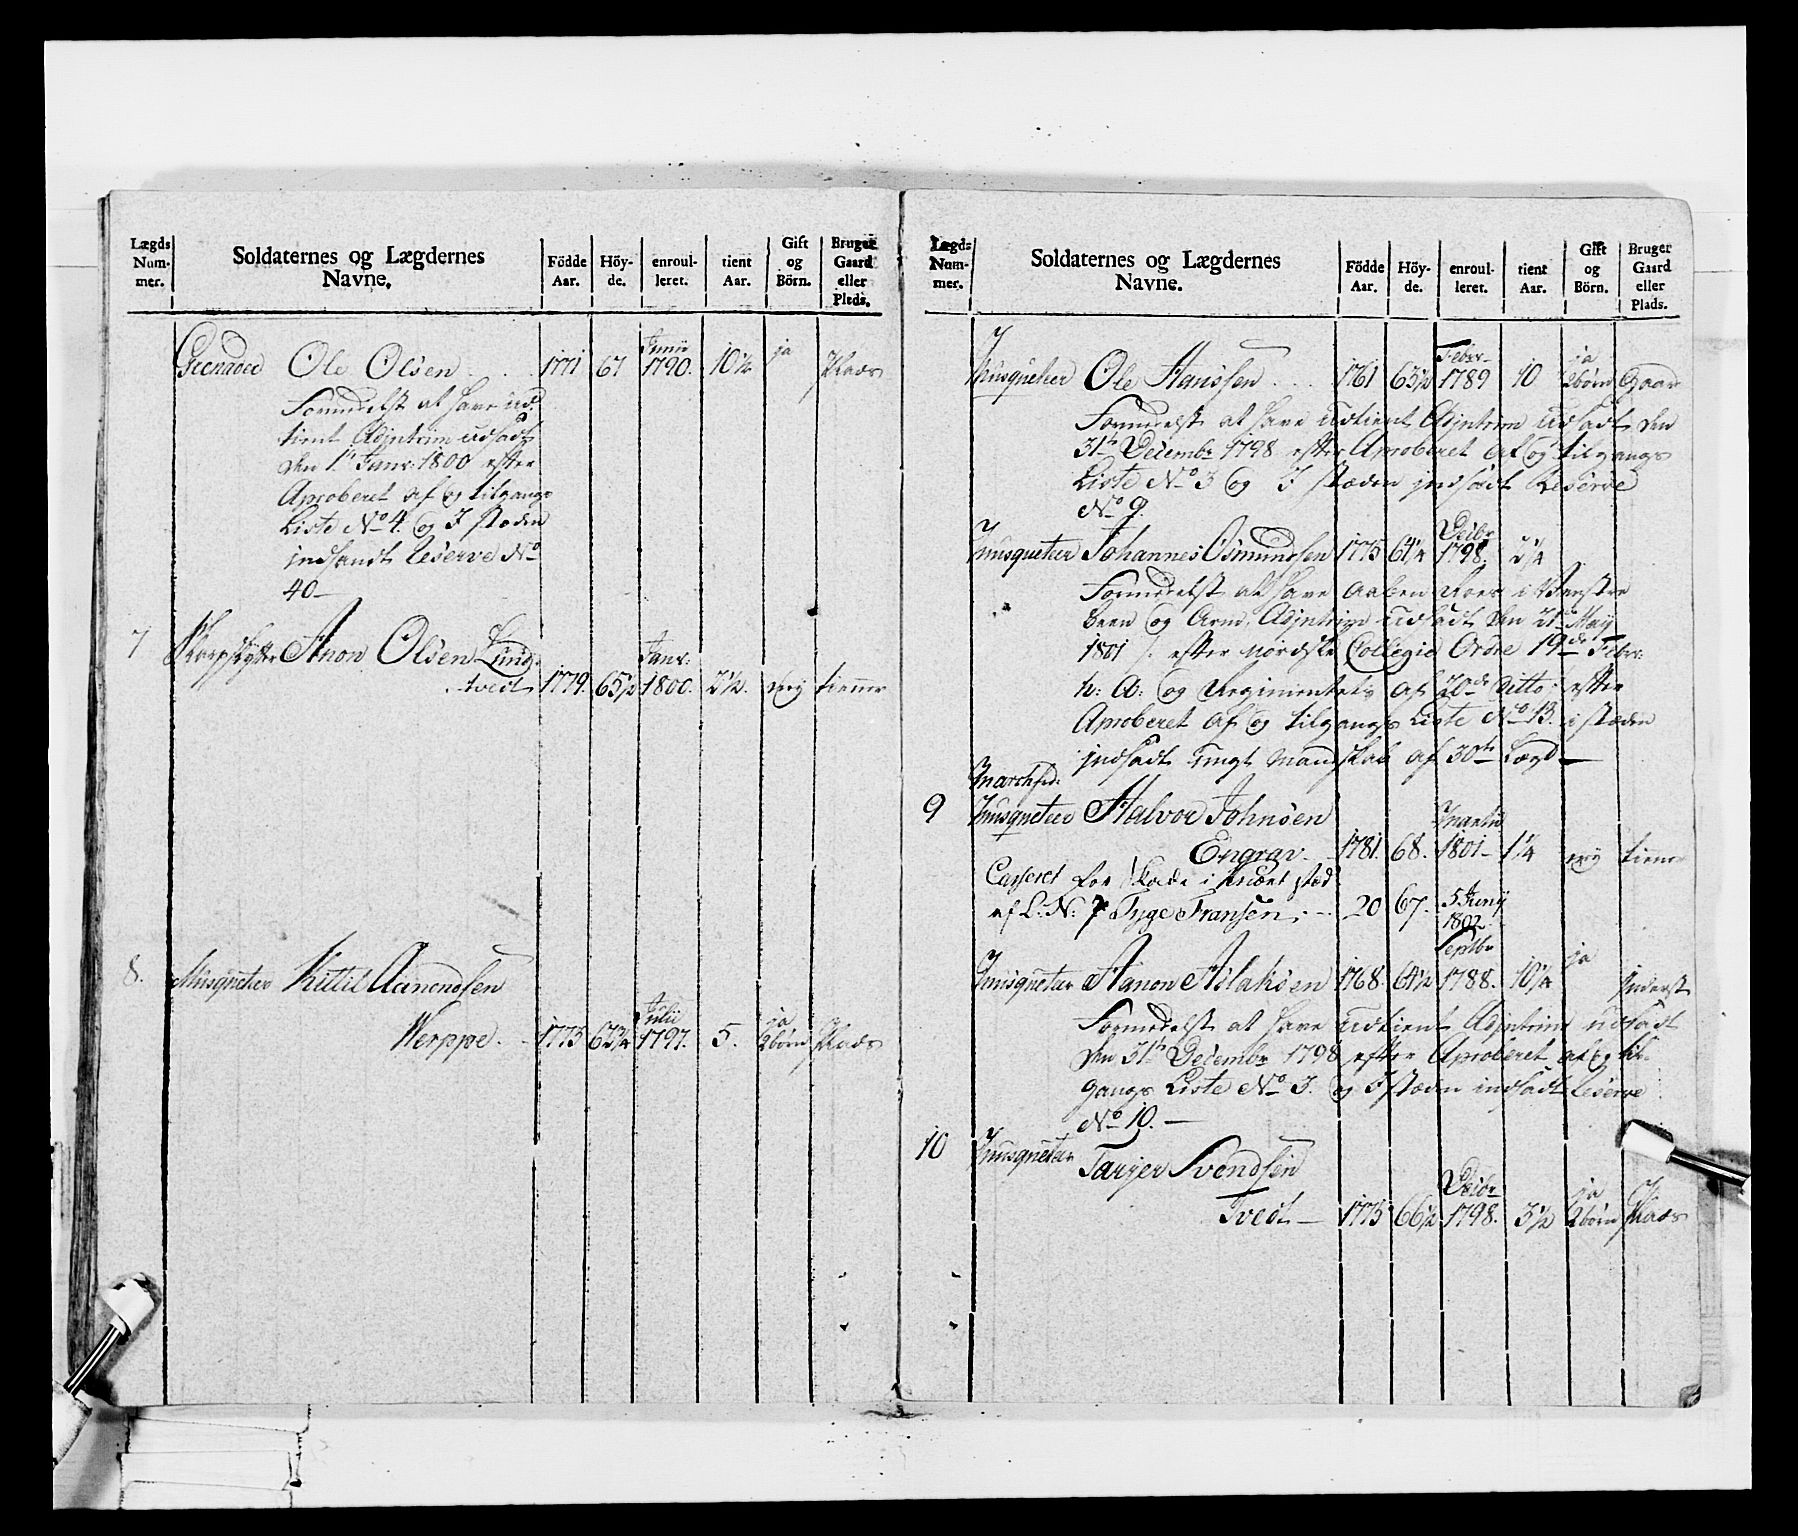 Lægds Num- mer. Soldaternes og Lægdernes Navne. Födde Aar. Höy- de. enroul- leret. tient Aar. Gift og Börn. Bruger Gaard eller Plads.
Grenadeer Ole Olsen 1771 67 Junii 1790. 10½ ja Plads
Formedelst at have ud-
tient Adjntrim udsadt
den 1t Janr: 1800 efter
Aproberet af og tilgangs
Liste No 4. og I stæden
indsandt Reserve No
40 —
7 Skarpskytter Anon Olsen Lund-
tvedt 1779. 65½ Janr: 1800. 2½. nej tienner
8. Musqueteer Kittil Aanendsen
Werppe. 1775 62¾ Julii 1797. 5. ja 2börn Plads
Lægds Num- mer. Soldaternes og Lægdernes Navne. Födde Aar. Höy- de. enroul- leret. tient Aar. Gift og Börn. Bruger Gaard eller Plads.
Musqueteer Ole Hanssen 1761 65½ Febr- 1789 10 ja 2börn Gaar
Formedelst at have udtient Adjntrim udsadt den
31te Decembr 1798 efter Aproberet af og tilgangs
Liste No 3 og I stæden indsadt Reserve
No 9.
Musqueteer Johannes Osmundsen 1775 61¼ Decbr 1798. 2¼
Formedelst at have aaben Skaer i Venstre
Been og Arm, Adjntrim udsadt den 21de May
1801 /: efter Nordske Collegie Ordre 19de Febr:
h: A: og Regimentets af 20de Ditto: efter
Aproberet af og tilgangs Liste No 13. i stæden
indsadt ungt Mandskab af 30te Lægd —
Marchfd:
9 Musqueteer Halvor Johnsen
Engrav 1781. 68. Martii 1801 — 1¼ nej tienner
Casseret for Skade i Knæet sted
af L: N: 7 Tyge Fransen. — 20 67. 5 Juny 1802
Musqueteer Aanon Aslaksen 1768. 61½ Septbr 1788. 10¼ ja Inderst
Formedelst at have udtient Adjntrim udsadt
den 31te Decembr 1798 efter Aproberet af og til-
gangs Liste No 3. og I stæden indsadt Reserve
No 10. —
10 Musqueteer Tarjer Svendsen
Tvedt — 1775 66½ Decbr 1798. 3½ ja 2börn Plads